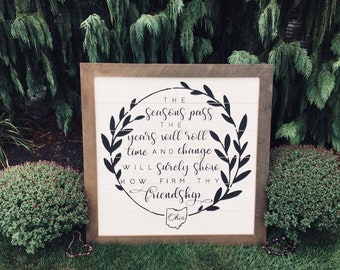 THE
seasons pass
THE
years will roll
time AND change
WILL surely show
HOW FIRM THY
friendship
Ohio